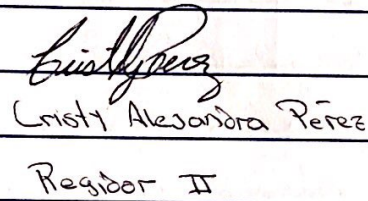 Cristy Perez
Cristy Alesandra Pérez
Regidor II